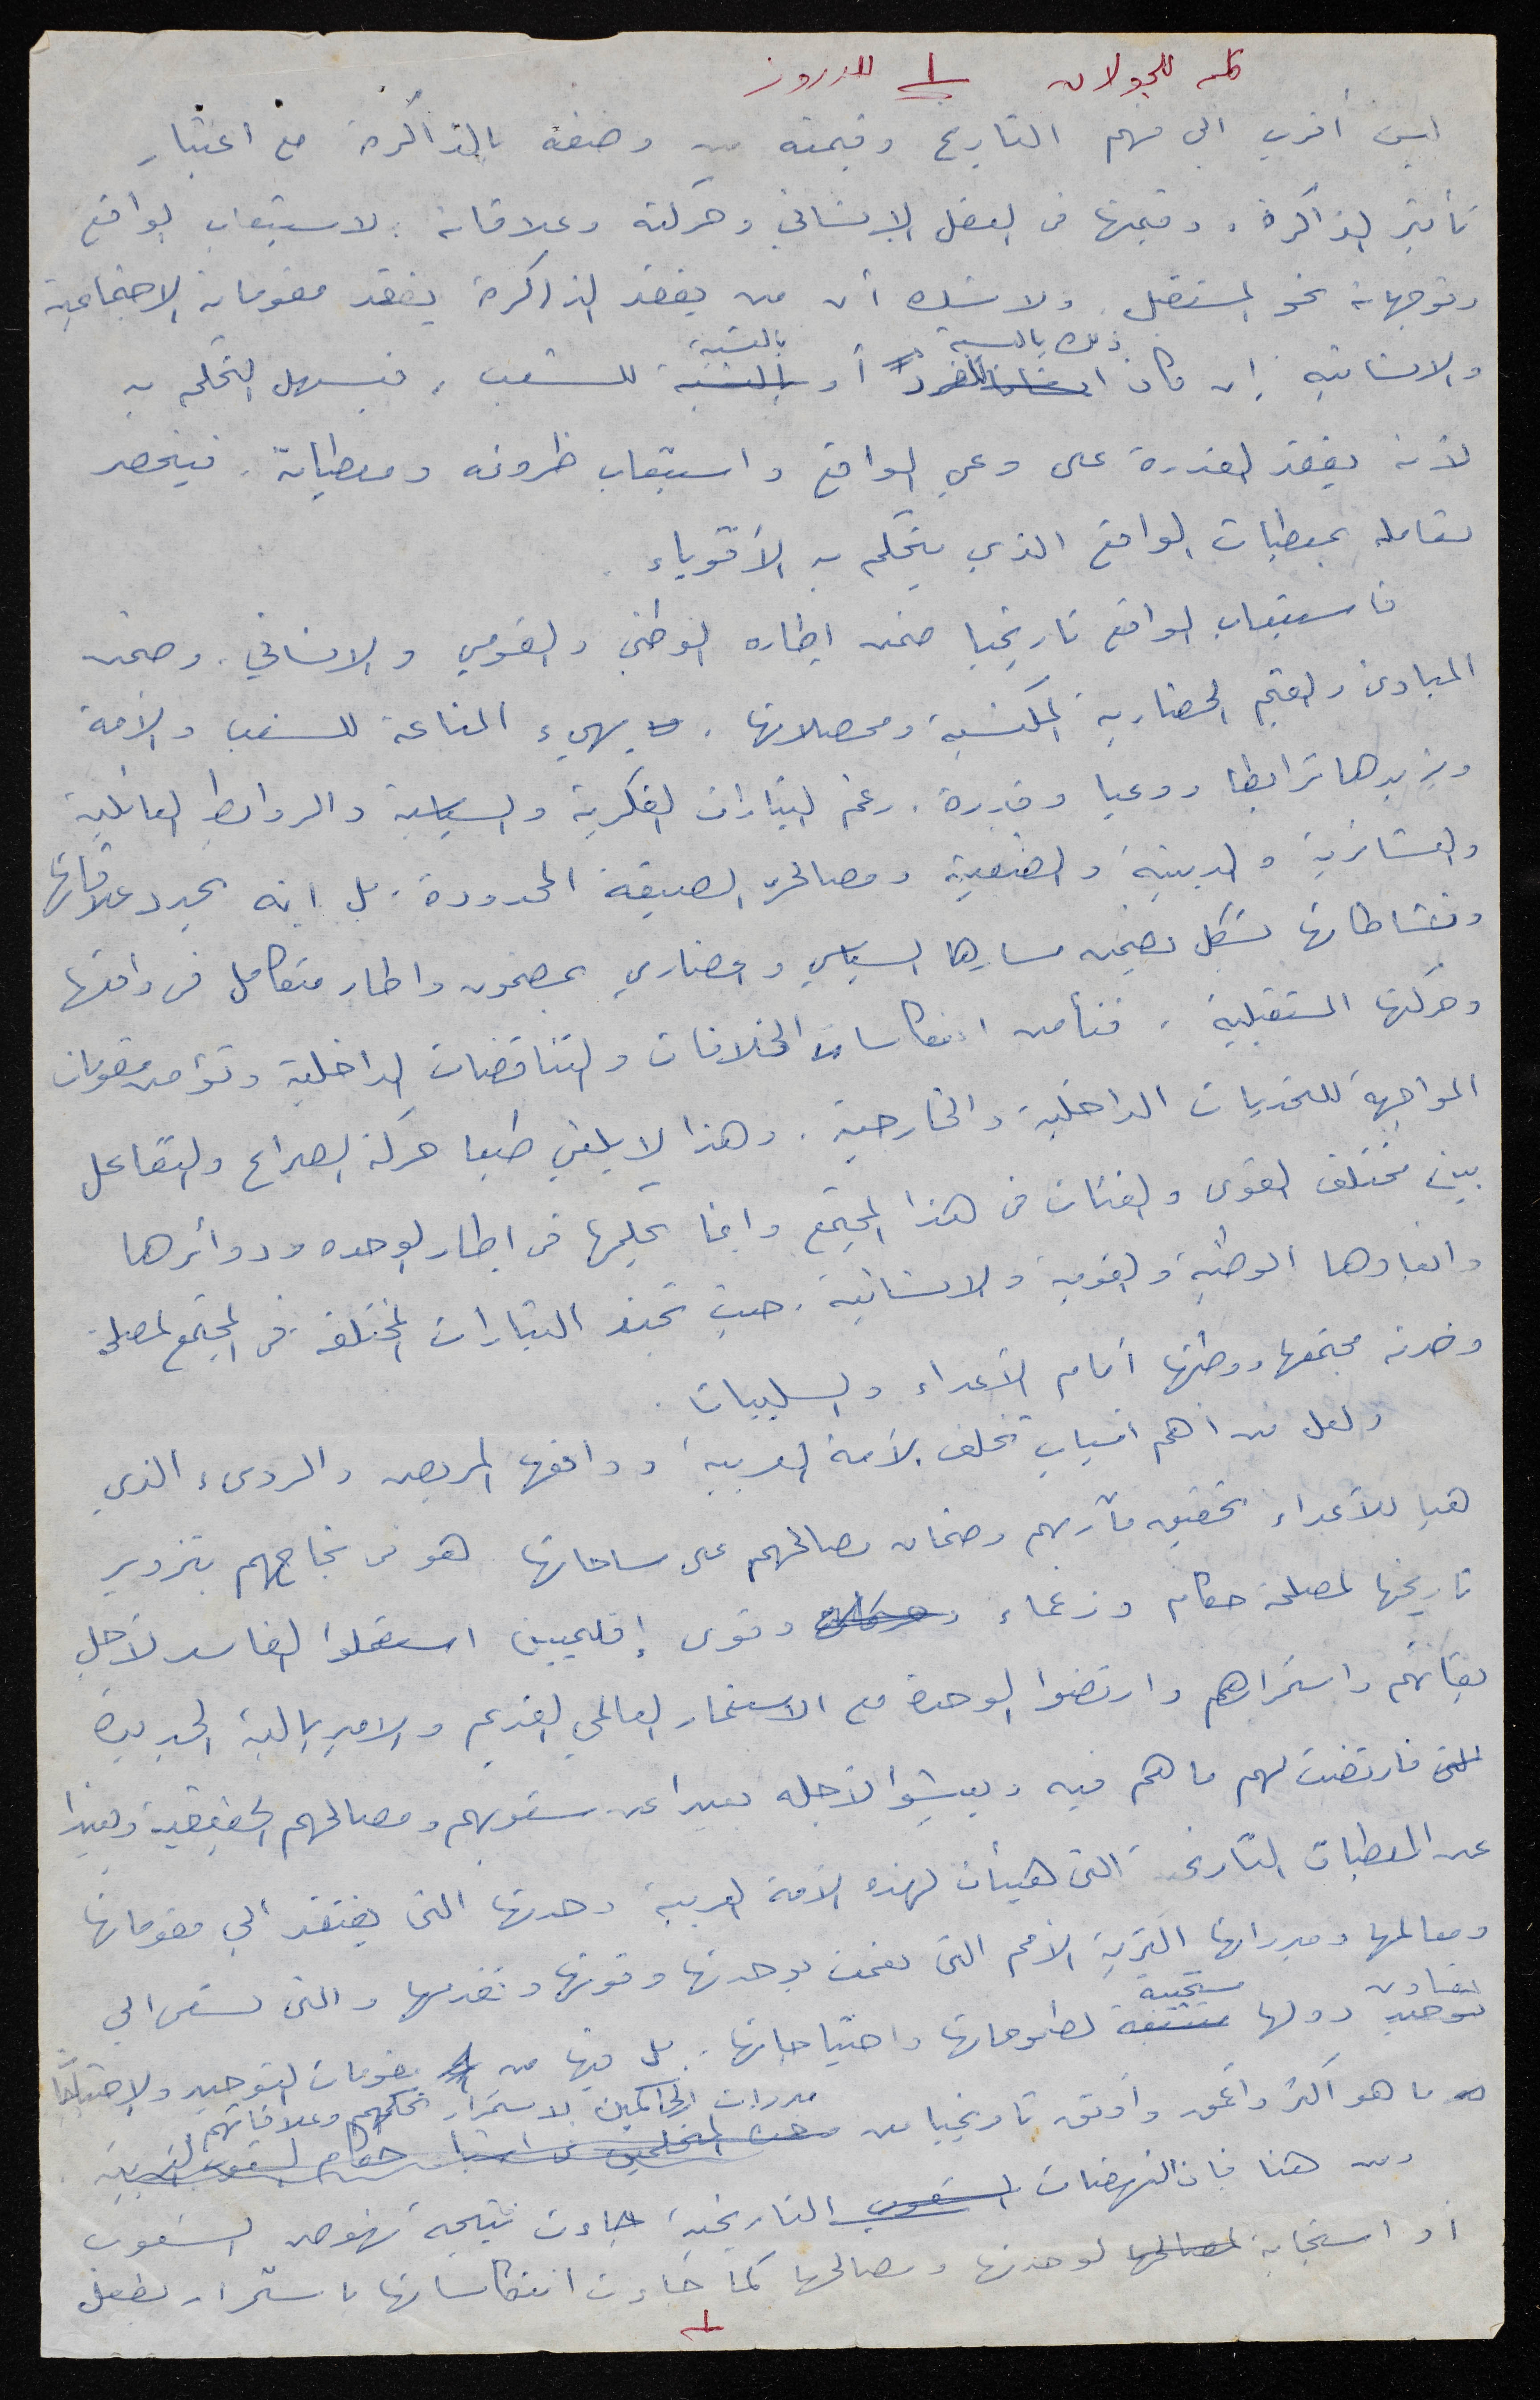 كلمة للجولان 1 للدروز
ليس أقرب الى فهم التاريخ وقيمته من وصفه بالذاكرة مع اعتبار
تأثير الذاكرة، وقيمتها في العقل الإنساني وحركته وعلاقاته. لاستيعاب الواقع
وتوجهاته نحو المستقبل. ولا شك أن من يفقد الذاكرة يفقد مقوماته الاجتماعية
والانسانية إن كان ذلك بالنسبة للفرد أو بالنسبة للشعب، فيسهل التحكم به
لأنه يفقد القدرة على وعي الواقع واستيعاب ظروفه ومعطياته. فينحصر
تعامله بمعطيات الواقع الذي يتحكم به الأقوياء.
فاستيعاب الواقع تاريخيا ضمن إطاره الوطني والقومي والانساني، وضمن
المبادئ والقيم الحضارية المكتسبة ومحصلاتها، يهيء المناعة للشعب والأمة
ويزيدها ترابطا ووعيا وقدرة، رغم التيارات الفكرية والسياسية والروابط العائلية
والعشائرية والدينية والضيقة ومصالحها الضيقة المحدودة. بل انه يحدد علاقاتها
ونشاطاتها بشكل يضمن مسارها السياسي والحضاري بمضمون واطار متكامل في واقعها
وحركتها المستقبلية، فتأمن انعكاسات الخلافات والتناقضات الداخلية وتؤمن مقومات
المواجهة للتحديات الداخلية والخارجية. وهذا لا يلغي طبعا حركة الصراع والتفاعل
بين مختلف القوى والفئات في هذا المجتمع وانما يحكمها في اطار الوحده ودوائرها
وابعادها الوطنية والقومية والانسانية. حيث تجند التيارات المختلفة في المجتمع لمصلحة
وخدمة مجتمعها ووطنها أمام الأعداء والسلبيات.
ولعل من اهم اسباب تخلف الأمة العربية وواقعها المريض والردىء الذي
هيأ للأعداء تحقيق مآربهم وضمان مصالحهم على ساحاتها هو في نجاحهم بتزوير
تاريخها لمصلحة حكام وزعماء وقوى إقليميين استغلوا الفاسد لأجل
بقائهم واستمرارهم وارتضوا الوحدة مع الاستعمار العالمي القديم والامبريالية الجديدة
التي فارتضت لهم ما هم فيه ويعيشوا لأجله بعيدا عن شعوبهم ومصالحهم الحقيقية وبعيدا
عن المعطيات التاريخية التي هيأت لهذه الأمة العربية وحدتها التي يفتقد الى مقوماتها
ومعالمها ومبرراتها اكثرية الأمم التي نعمت بوحدتها وقوتها وتقدمها والتي تسعى الى
توحيد دولها مستجيبة لطموحاتها واحتياجاتها. بل فيها من مقومات التوحيد والاحتياجات
ما هو أكثر وأعمق وأوثق تاريخيا من مبررات الحاكمين لاستمرار تحكمهم وعلاقاتهم
ومن هنا فان النهضات التاريخية جاءت نتيجة نهوض الشعوب
او استجابة لوحدتها ومصالحها كما جاءت انتكاساتها باستمرار بفعل
1